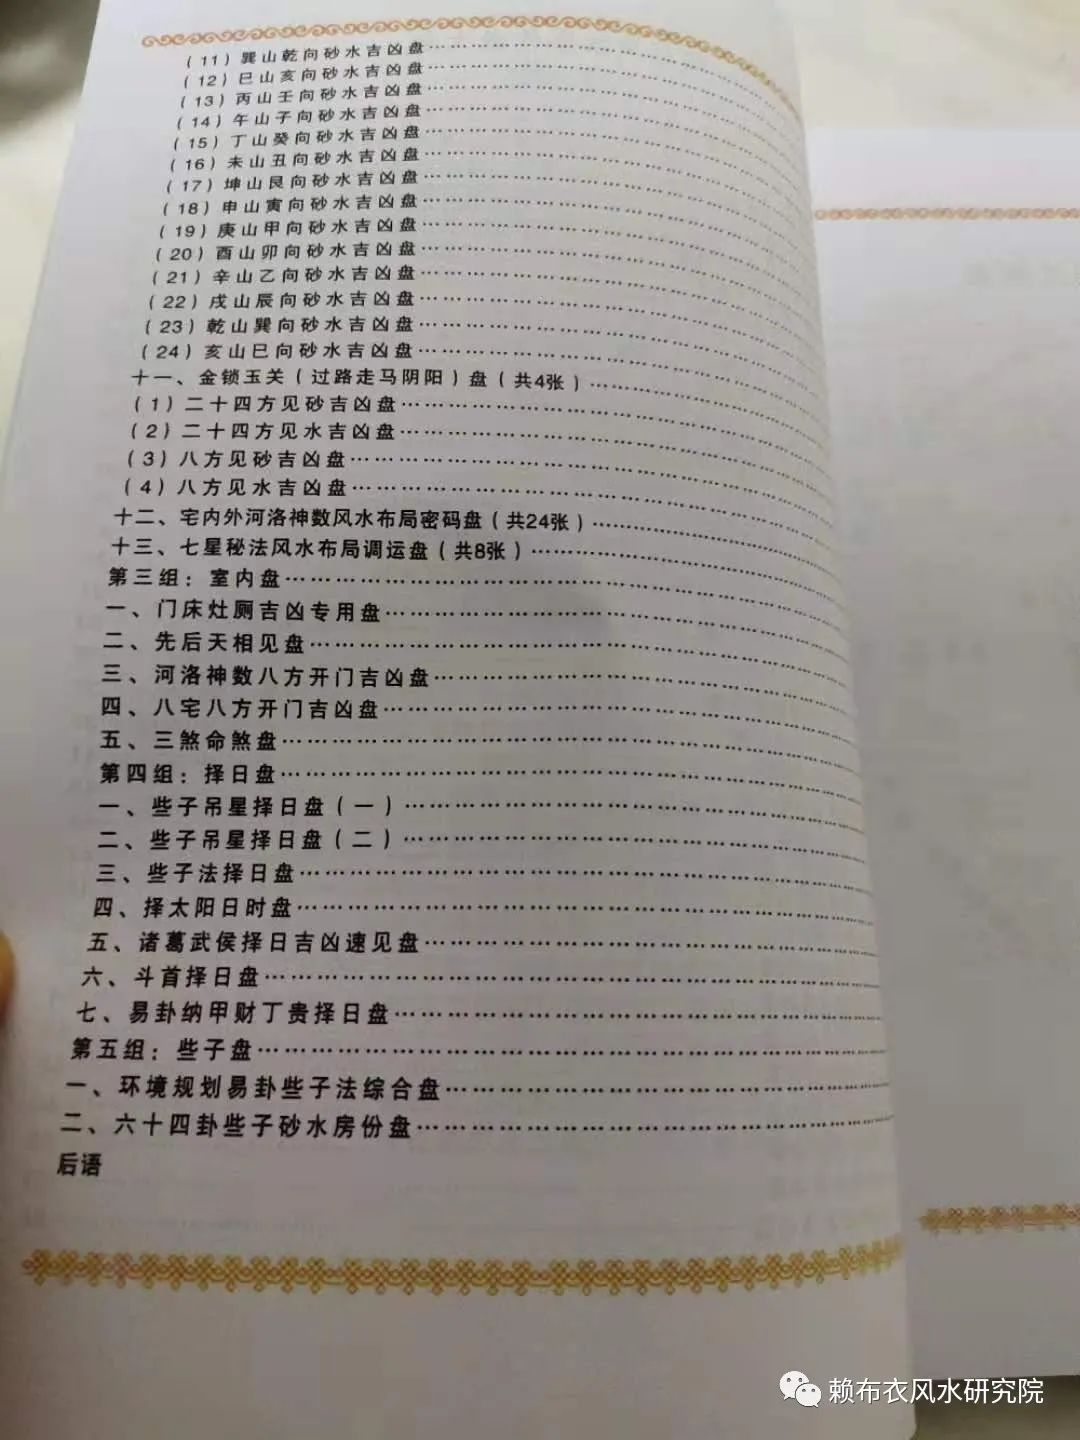 （11）巽山乾向砂水吉凶盘………………………………
（12）巳山亥向砂水吉凶盘………………………………
（13）丙山壬向砂水吉凶盘………………………………
（14）午山子向砂水吉凶盘………………………………
（15）丁山癸向砂水吉凶盘………………………………
（16）未山丑向砂水吉凶盘………………………………
（17）坤山艮向砂水吉凶盘………………………………
（18）申山寅向砂水吉凶盘………………………………
（19）庚山甲向砂水吉凶盘………………………………
（20）酉山卯向砂水吉凶盘………………………………
（21）辛山乙向砂水吉凶盘………………………………
（22）戌山辰向砂水吉凶盘………………………………
（23）乾山巽向砂水吉凶盘………………………………
（24）亥山巳向砂水吉凶盘………………………………
十一、金锁玉关（过路走马阴阳）盘（共4张）………………
（1）二十四方见砂吉凶盘………………………………
（2）二十四方见水吉凶盘………………………………
（3）八方见砂吉凶盘………………………………
（4）八方见水吉凶盘………………………………
十二、宅内外河洛神数风水布局密码盘（共24张）………………
十三、七星秘法风水布局调运盘（共8张）………………
第三组：室内盘………………………………
一、门床灶厕吉凶专用盘………………………………
二、先后天相见盘………………………………
三、河洛神数八方开门吉凶盘………………………………
四、八宅八方开门吉凶盘………………………………
五、三煞命煞盘………………………………
第四组：择日盘………………………………
一、些子吊星择日盘（一）………………………………
二、些子吊星择日盘（二）………………………………
三、些子法择日盘………………………………
四、择太阳日时盘………………………………
五、诸葛武侯择日吉凶速见盘………………………………
六、斗首择日盘………………………………
七、易卦纳甲财丁贵择日盘………………………………
第五组：些子盘………………………………
一、环境规划易卦些子法综合盘………………………………
二、六十四卦些子砂水房份盘………………………………
后语
赖布衣风水研究院